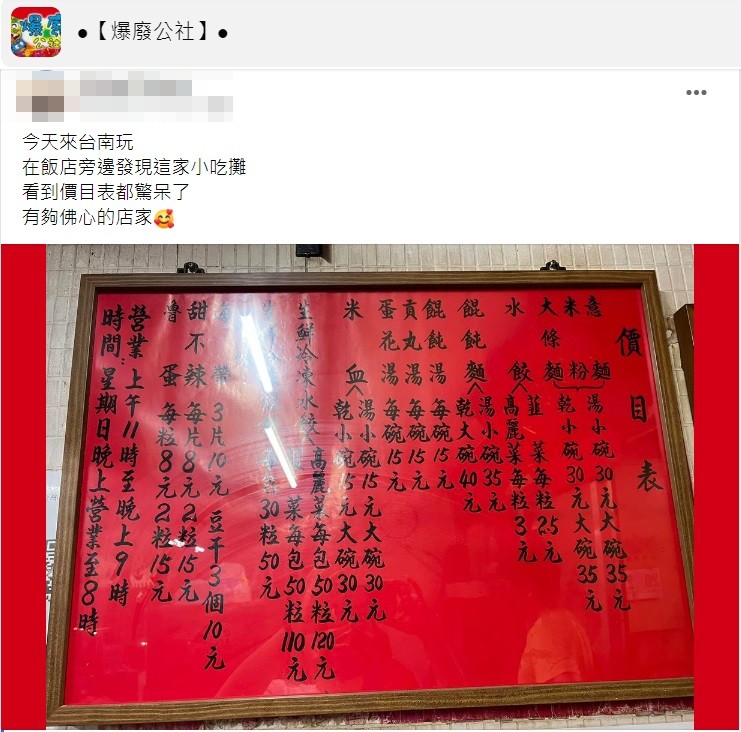 爆廢公社
●【爆廢公社】●
今天來台南玩
在飯店旁邊發現這家小吃攤
看到價目表都驚呆了
有夠佛心的店家🥰
價目表
意麵
米粉
大條麵
湯小碗30元大碗35元
乾小碗30元大碗35元
水餃
韮菜每粒2.5元
高麗菜每粒3元
餛飩麵
湯小碗35元
乾大碗40元
餛飩湯每碗15元
貢丸湯每碗15元
蛋花湯每碗15元
米血
湯小碗15元大碗30元
乾小碗15元大碗30元
生鮮冷凍水餃
高麗菜每包50粒120元
菜每包50粒110元
30粒50元
帶3片10元 豆干3個10元
甜不辣每片8元2粒15元
魯蛋每粒8元2粒15元
營業時間：
上午11時至晚上9時
星期日晚上營業至8時